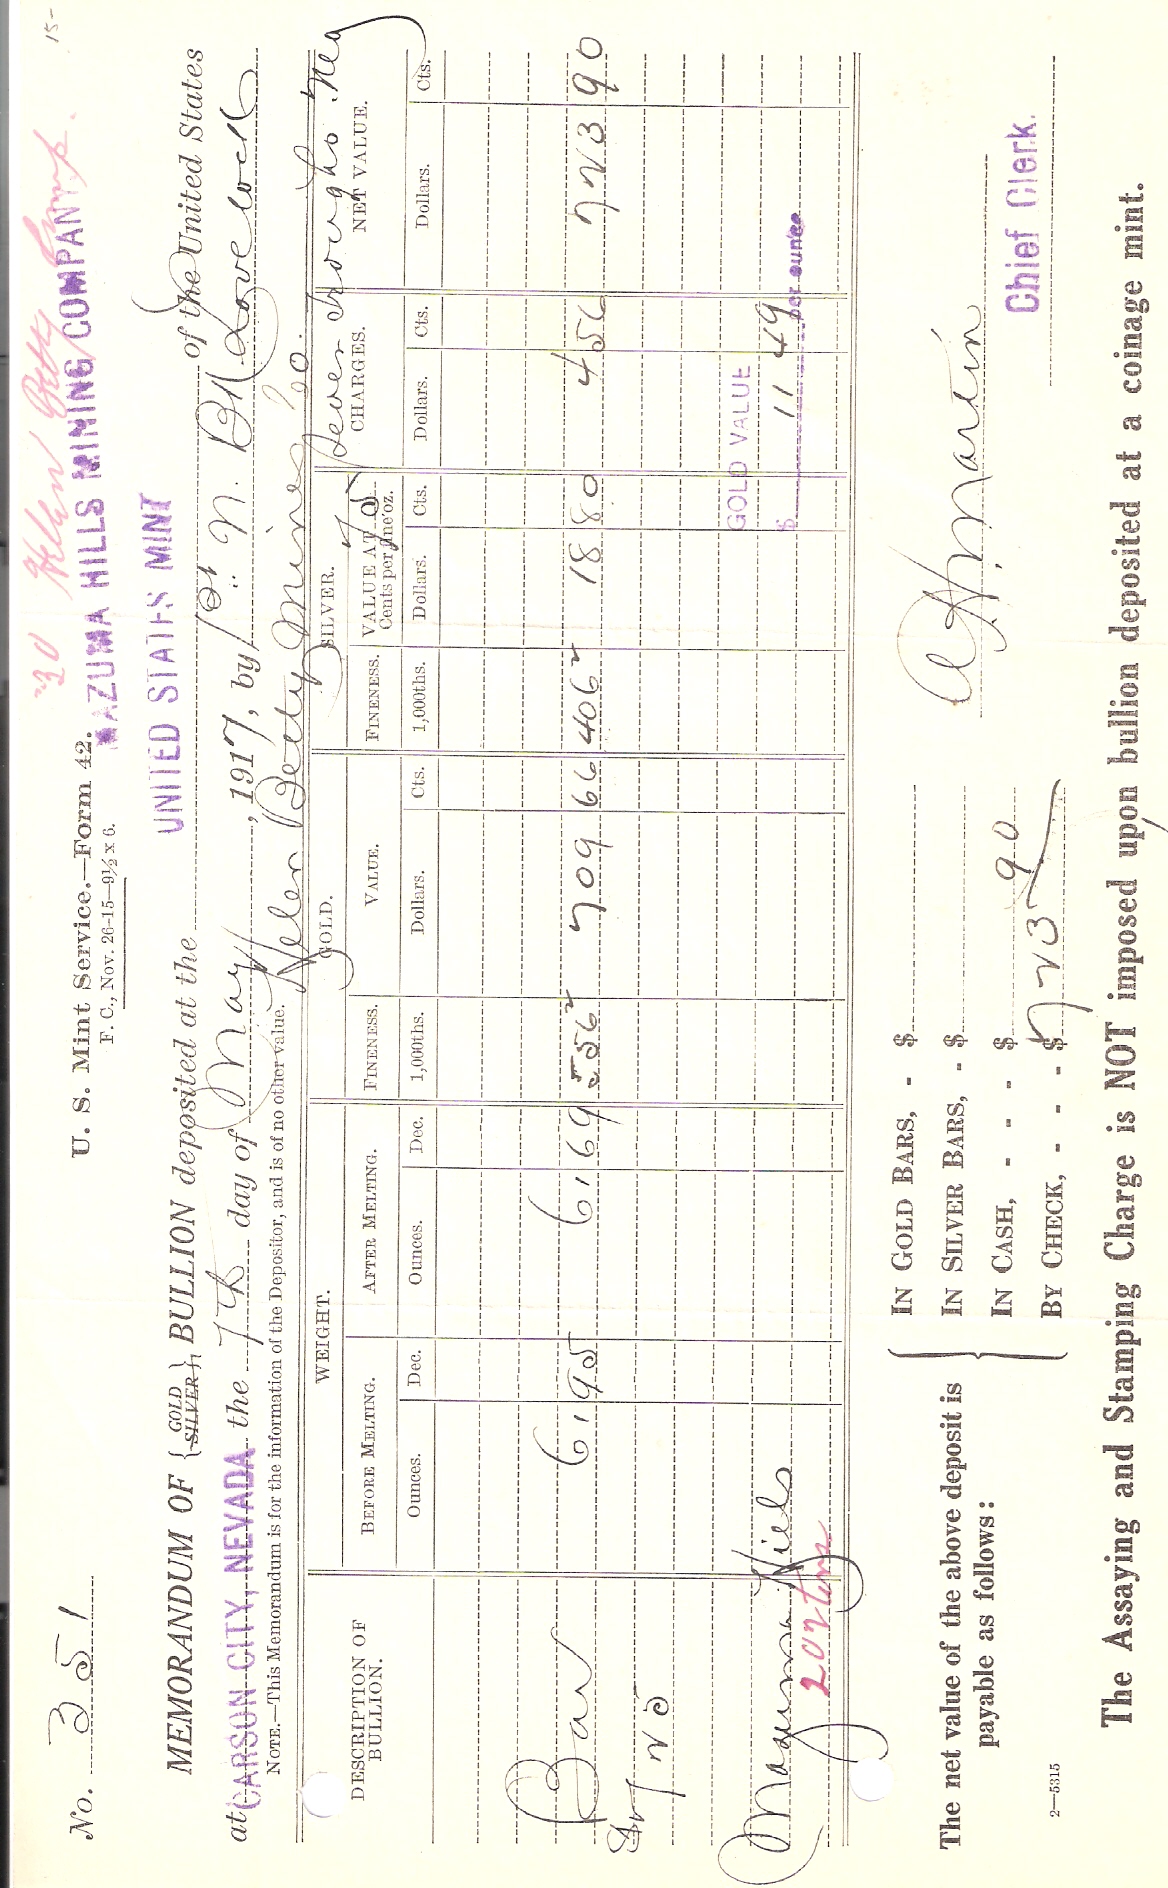 15-
"30 Helen Betty Comp.
No. 351
U. S. Mint Service.—Form 42.
MAZUMA HILLS MINING COMPANY
F. C., Nov. 26-15—9½ x 6.
UNITED STATES MINT
MEMORANDUM OF {GOLD SILVER} BULLION deposited at the of the United States
at CARSON CITY, NEVADA the 7th day of May, 1917, by 1st N. Bk Lovelock
NOTE.—This Memorandum is for the information of the Depositor, and is of no other value.
Helen Betty Mine
Seven Troughs Nev
DESCRIPTION OF BULLION. WEIGHT. GOLD. SILVER. CHARGES. NET VALUE.
BEFORE MELTING. AFTER MELTING. FINENESS. VALUE. FINENESS. VALUE AT 75 Cents per fine oz.
Ounces. Dec. Ounces. Dec. 1,000ths. Dollars. Cts. 1,000ths. Dollars. Cts. Dollars. Cts. Dollars. Cts.
Bar 61 95 61 69 556 2 709 66 406 2 18 80 4 56 723 90
GOLD VALUE
$ 11 49 per ounce
Mazuma Hills
The net value of the above deposit is
payable as follows:
IN GOLD BARS, - $
IN SILVER BARS, - $
IN CASH, - - - $
BY CHECK, - - - $ 723 90
Martin
Chief Clerk.
The Assaying and Stamping Charge is NOT imposed upon bullion deposited at a coinage mint.
2—5315